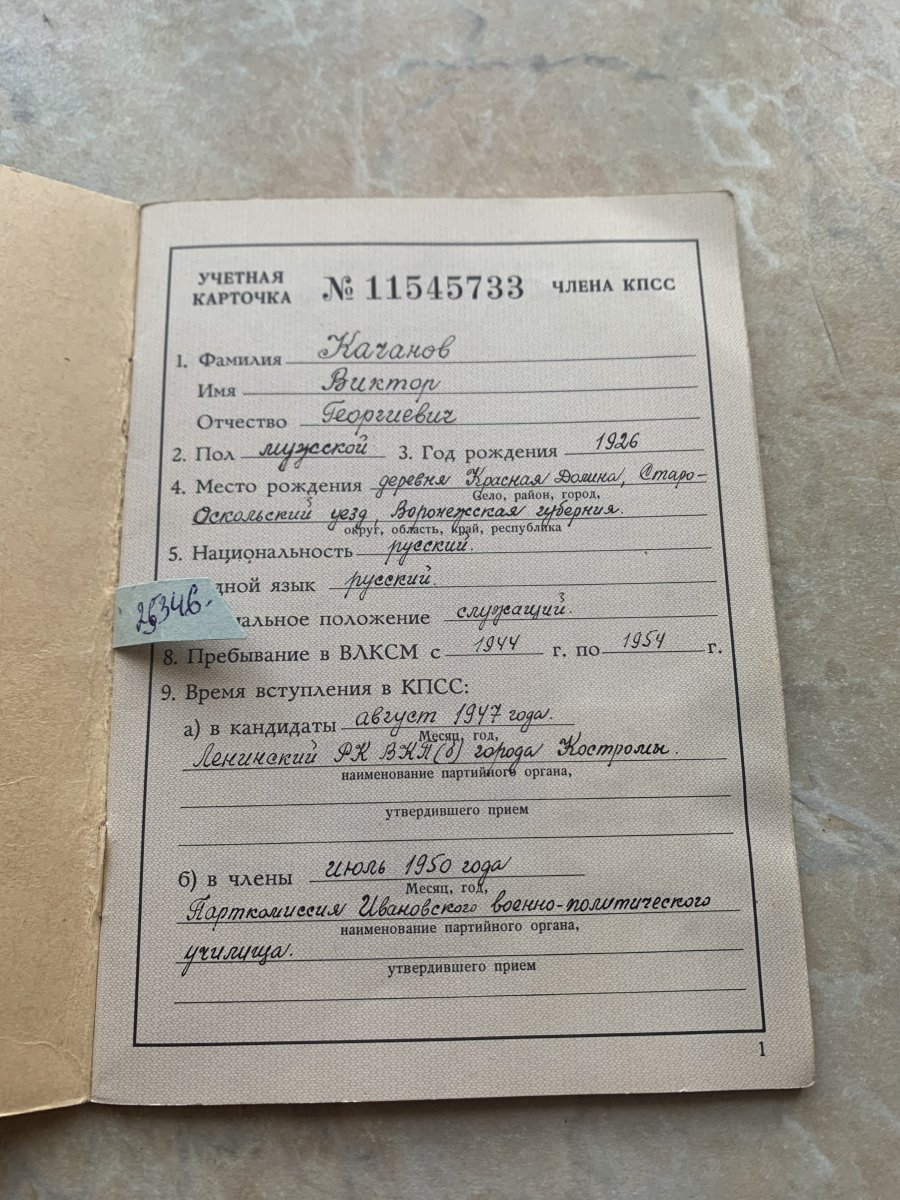 УЧЕТНАЯ КАРТОЧКА № 11545733 ЧЛЕНА КПСС
1. Фамилия Качанов
Имя Виктор
Отчество Георгиевич
2. Пол мужской 3. Год рождения 1926
4. Место рождения деревня Красная Долина, Старо-
Село, район, город,
Оскольский уезд, Воронежская губерния.
округ, область, край, республика
5. Национальность русский.
дной язык русский.
иальное положение служащий.
8. Пребывание в ВЛКСМ с 1944 г. по 1954 г.
9. Время вступления в КПСС:
а) в кандидаты август 1947 года.
Месяц, год,
Ленинский РК ВКП(б) города Костромы.
наименование партийного органа,
утвердившего прием
б) в члены июль 1950 года
Месяц, год,
Парткомиссия Ивановского военно-политического
наименование партийного органа,
училища.
утвердившего прием
1